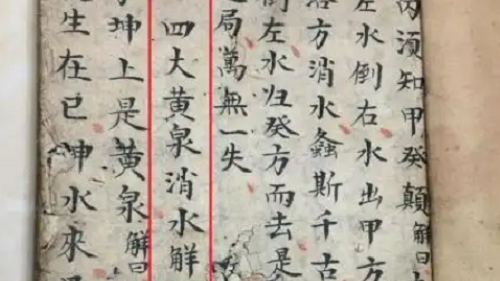 须知甲癸顛解曰
左水倒右水出甲方
方消水螽斯千古
倒左水归癸方而去是
局萬無一失
四大黄泉消水解
坤上是黄泉解曰
生在巳坤水來